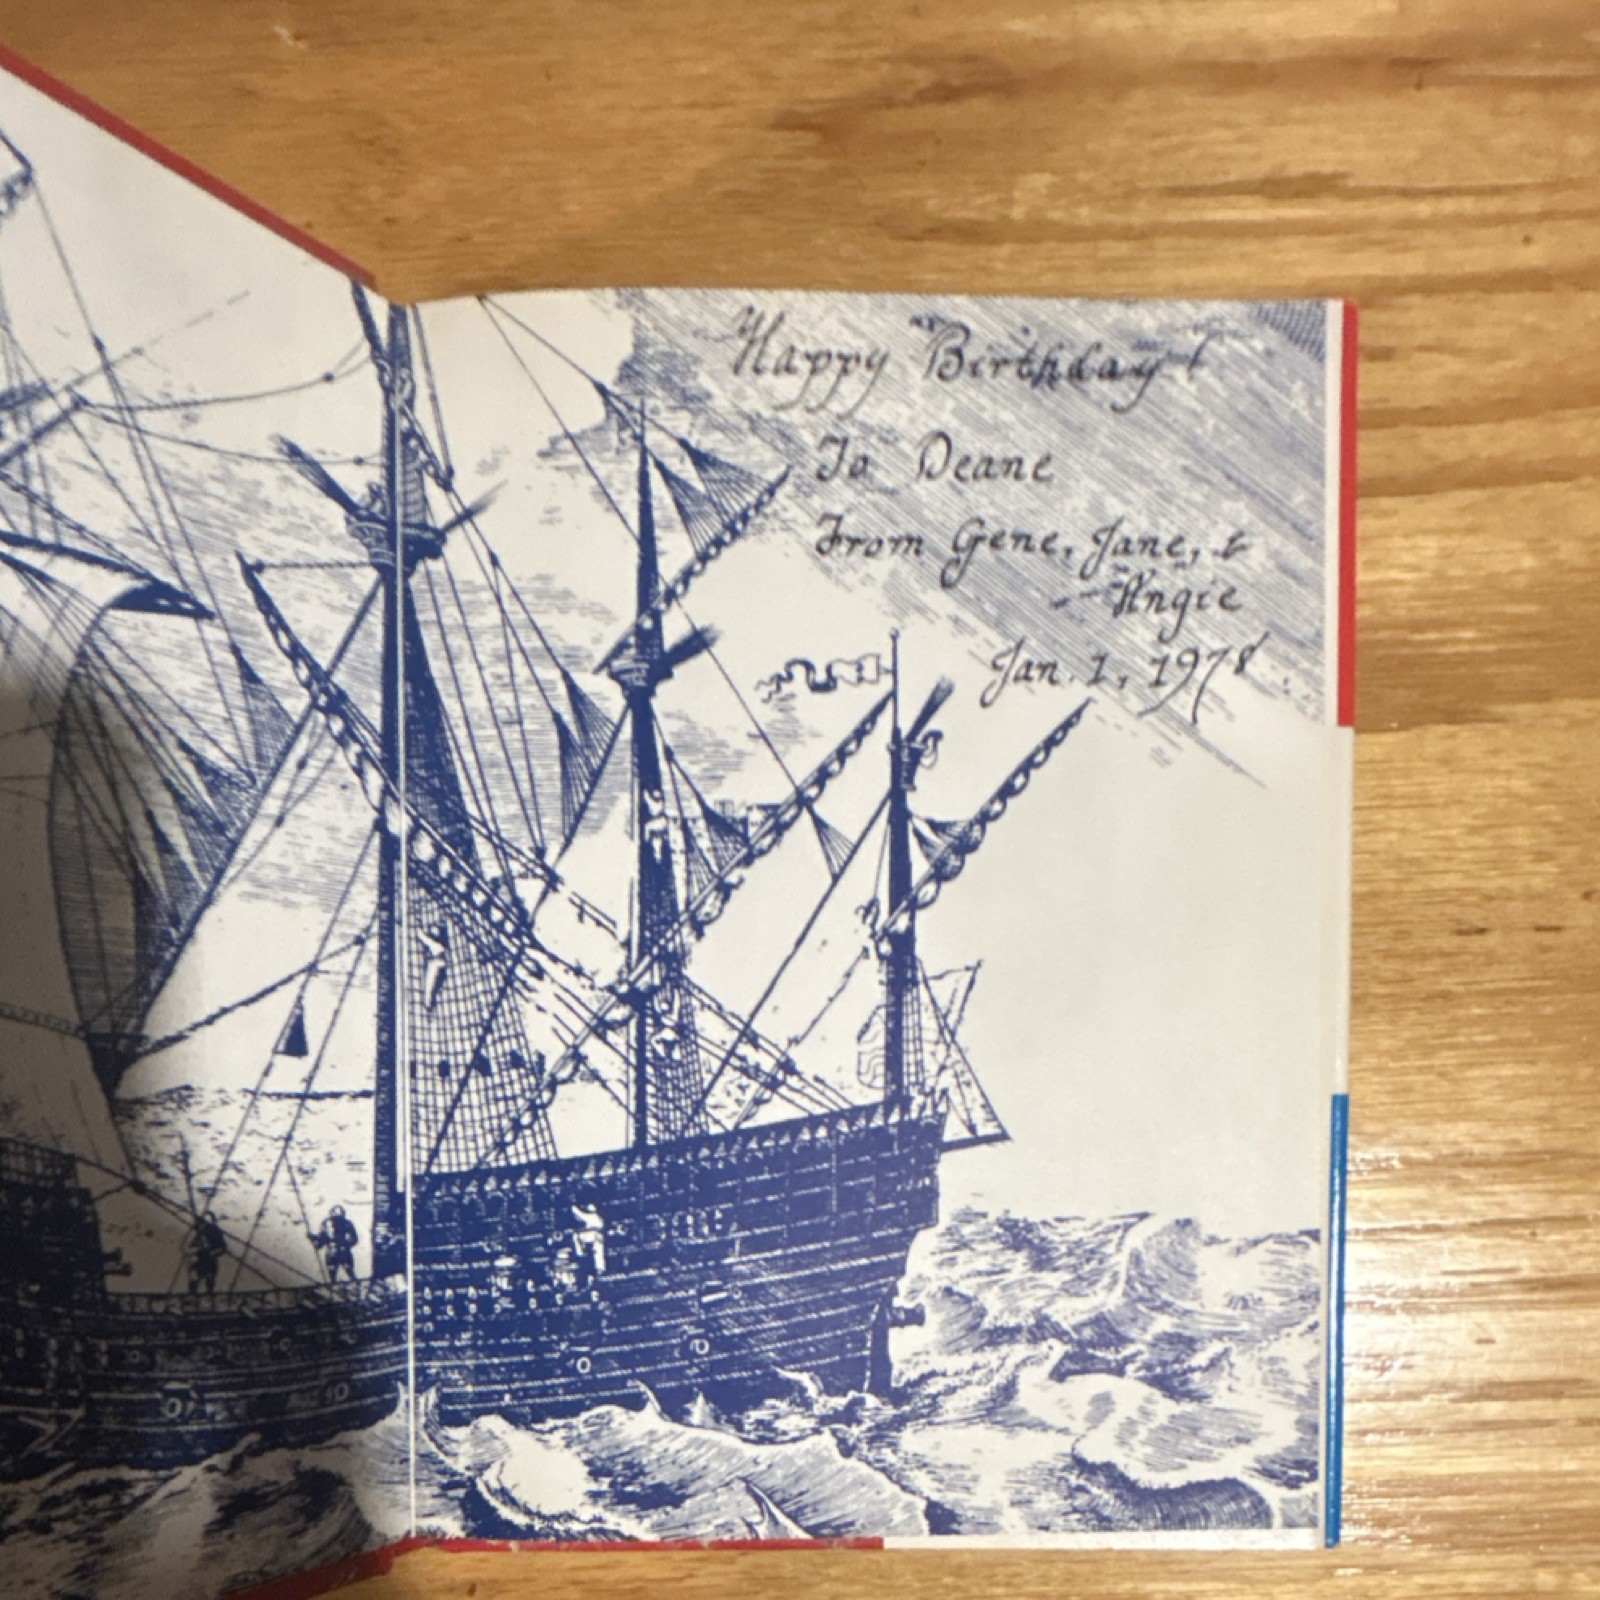 Happy Birthday!
To Deane
From Gene, Jane, &
Angie
Jan. 1, 1978